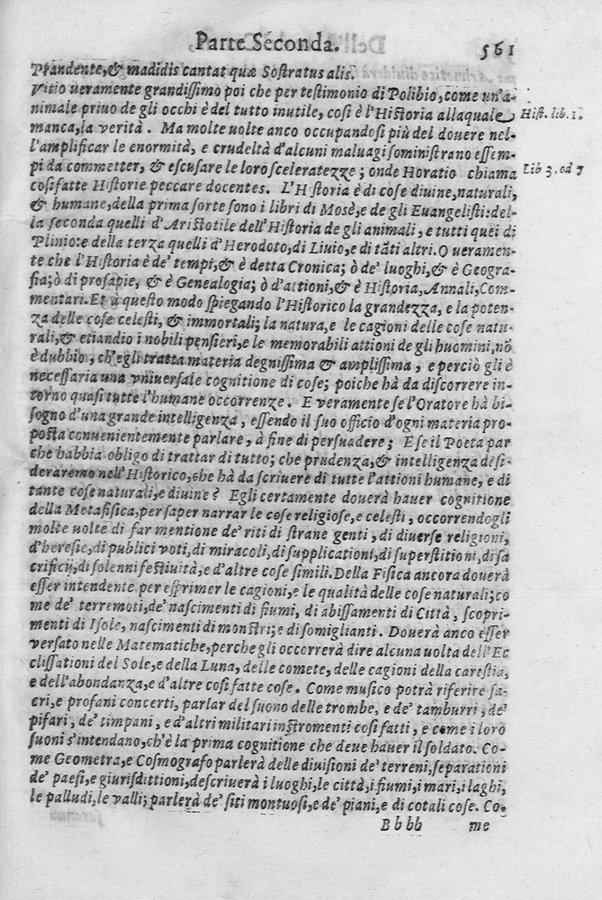 Parte Seconda. 561
Prandente,& madidis cantat quæ Sostratus alis.
Vitio ueramente grandissimo poi che per testimonio di Polibio, come un'a-
nimale priuo de gli occhi è del tutto inutile, così è l'Historia allaquale Hist. lib. 1.
manca, la verità. Ma molte uolte anco occupandosi più del douere nel-
l'amplificar le enormità, e crudeltà d'alcuni maluagi soministrano essem-
pi da commetter, & escusare le loro sceleratezze; onde Horatio chiama Lib 3. od 7
cosi fatte Historie peccare docentes. L'Historia è di cose diuine, naturali,
& humane, della prima sorte sono i libri di Mosè, e de gli Euangelisti: del-
la seconda quelli d'Aristotile dell'Historia de gli animali, e tutti quei di
Plinio: e della terza quelli d'Herodoto, di Liuio, e di tāti altri. O ueramen-
te che l'Historia è de' tempi, & è detta Cronica; ò de' luoghi, & è Geogra-
fia; ò di prosapie, & è Genealogia; ò d'attioni, & è Historia, Annali, Com-
mentari. Et à questo modo spiegando l'Historico la grandezza, e la poten-
za delle cose celesti, & immortali; la natura, e le cagioni delle cose natu-
rali, & etiandio i nobili pensieri, e le memorabili attioni de gli huomini, nō
è dubbio, ch'egli tratta materia degnissima & amplissima, e perciò gli è
necessaria una vniuersale cognitione di cose; poiche hà da discorrere in-
torno quasi tutte l'humane occorrenze. E veramente se l'Oratore hà bi-
sogno d'una grande intelligenza, essendo il suo officio d'ogni materia pro-
posta conuenientemente parlare, à fine di persuadere; E se il Poeta par
che habbia obligo di trattar di tutto; che prudenza, & intelligenza desi-
deraremo nell'Historico, che hà da scriuere di tutte l'attioni humane, e di
tante cose naturali, e diuine? Egli certamente douerà hauer cognitione
della Metafisica, per saper narrar le cose religiose, e celesti, occorrendogli
molte uolte di far mentione de' riti di strane genti, di diuerse religioni,
d'heresie, di publici voti, di miracoli, di supplicationi, di superstitioni, di sa
crificij, di solenni festiuità, e d'altre cose simili. Della Fisica ancora douerà
esser intendente per esprimer le cagioni, e le qualità delle cose naturali; co
me de' terremoti, de' nascimenti di fiumi, di abissamenti di Città, scopri-
menti di Isole, nascimenti di monstri; e di somiglianti. Douerà anco esser
versato nelle Matematiche, perche gli occorrerà dire alcuna uolta dell'Ec
clissationi del Sole, e della Luna, delle comete, delle cagioni della carestia,
e dell'abondanza, e d'altre cosi fatte cose. Come musico potrà riferire sa-
cri, e profani concerti, parlar del suono delle trombe, e de' tamburri, de'
pifari, de' timpani, e d'altri militari instromenti cosi fatti, e come i loro
suoni s'intendano, ch'è la prima cognitione che deue hauer il soldato. Co-
me Geometra, e Cosmografo parlerà delle diuisioni de' terreni, separationi
de' paesi, e giurisdittioni, descriuerà i luoghi, le città, i fiumi, i mari, i laghi,
le palludi, le valli; parlerà de' siti montuosi, e de' piani, e di cotali cose. Co-
Bbbb me